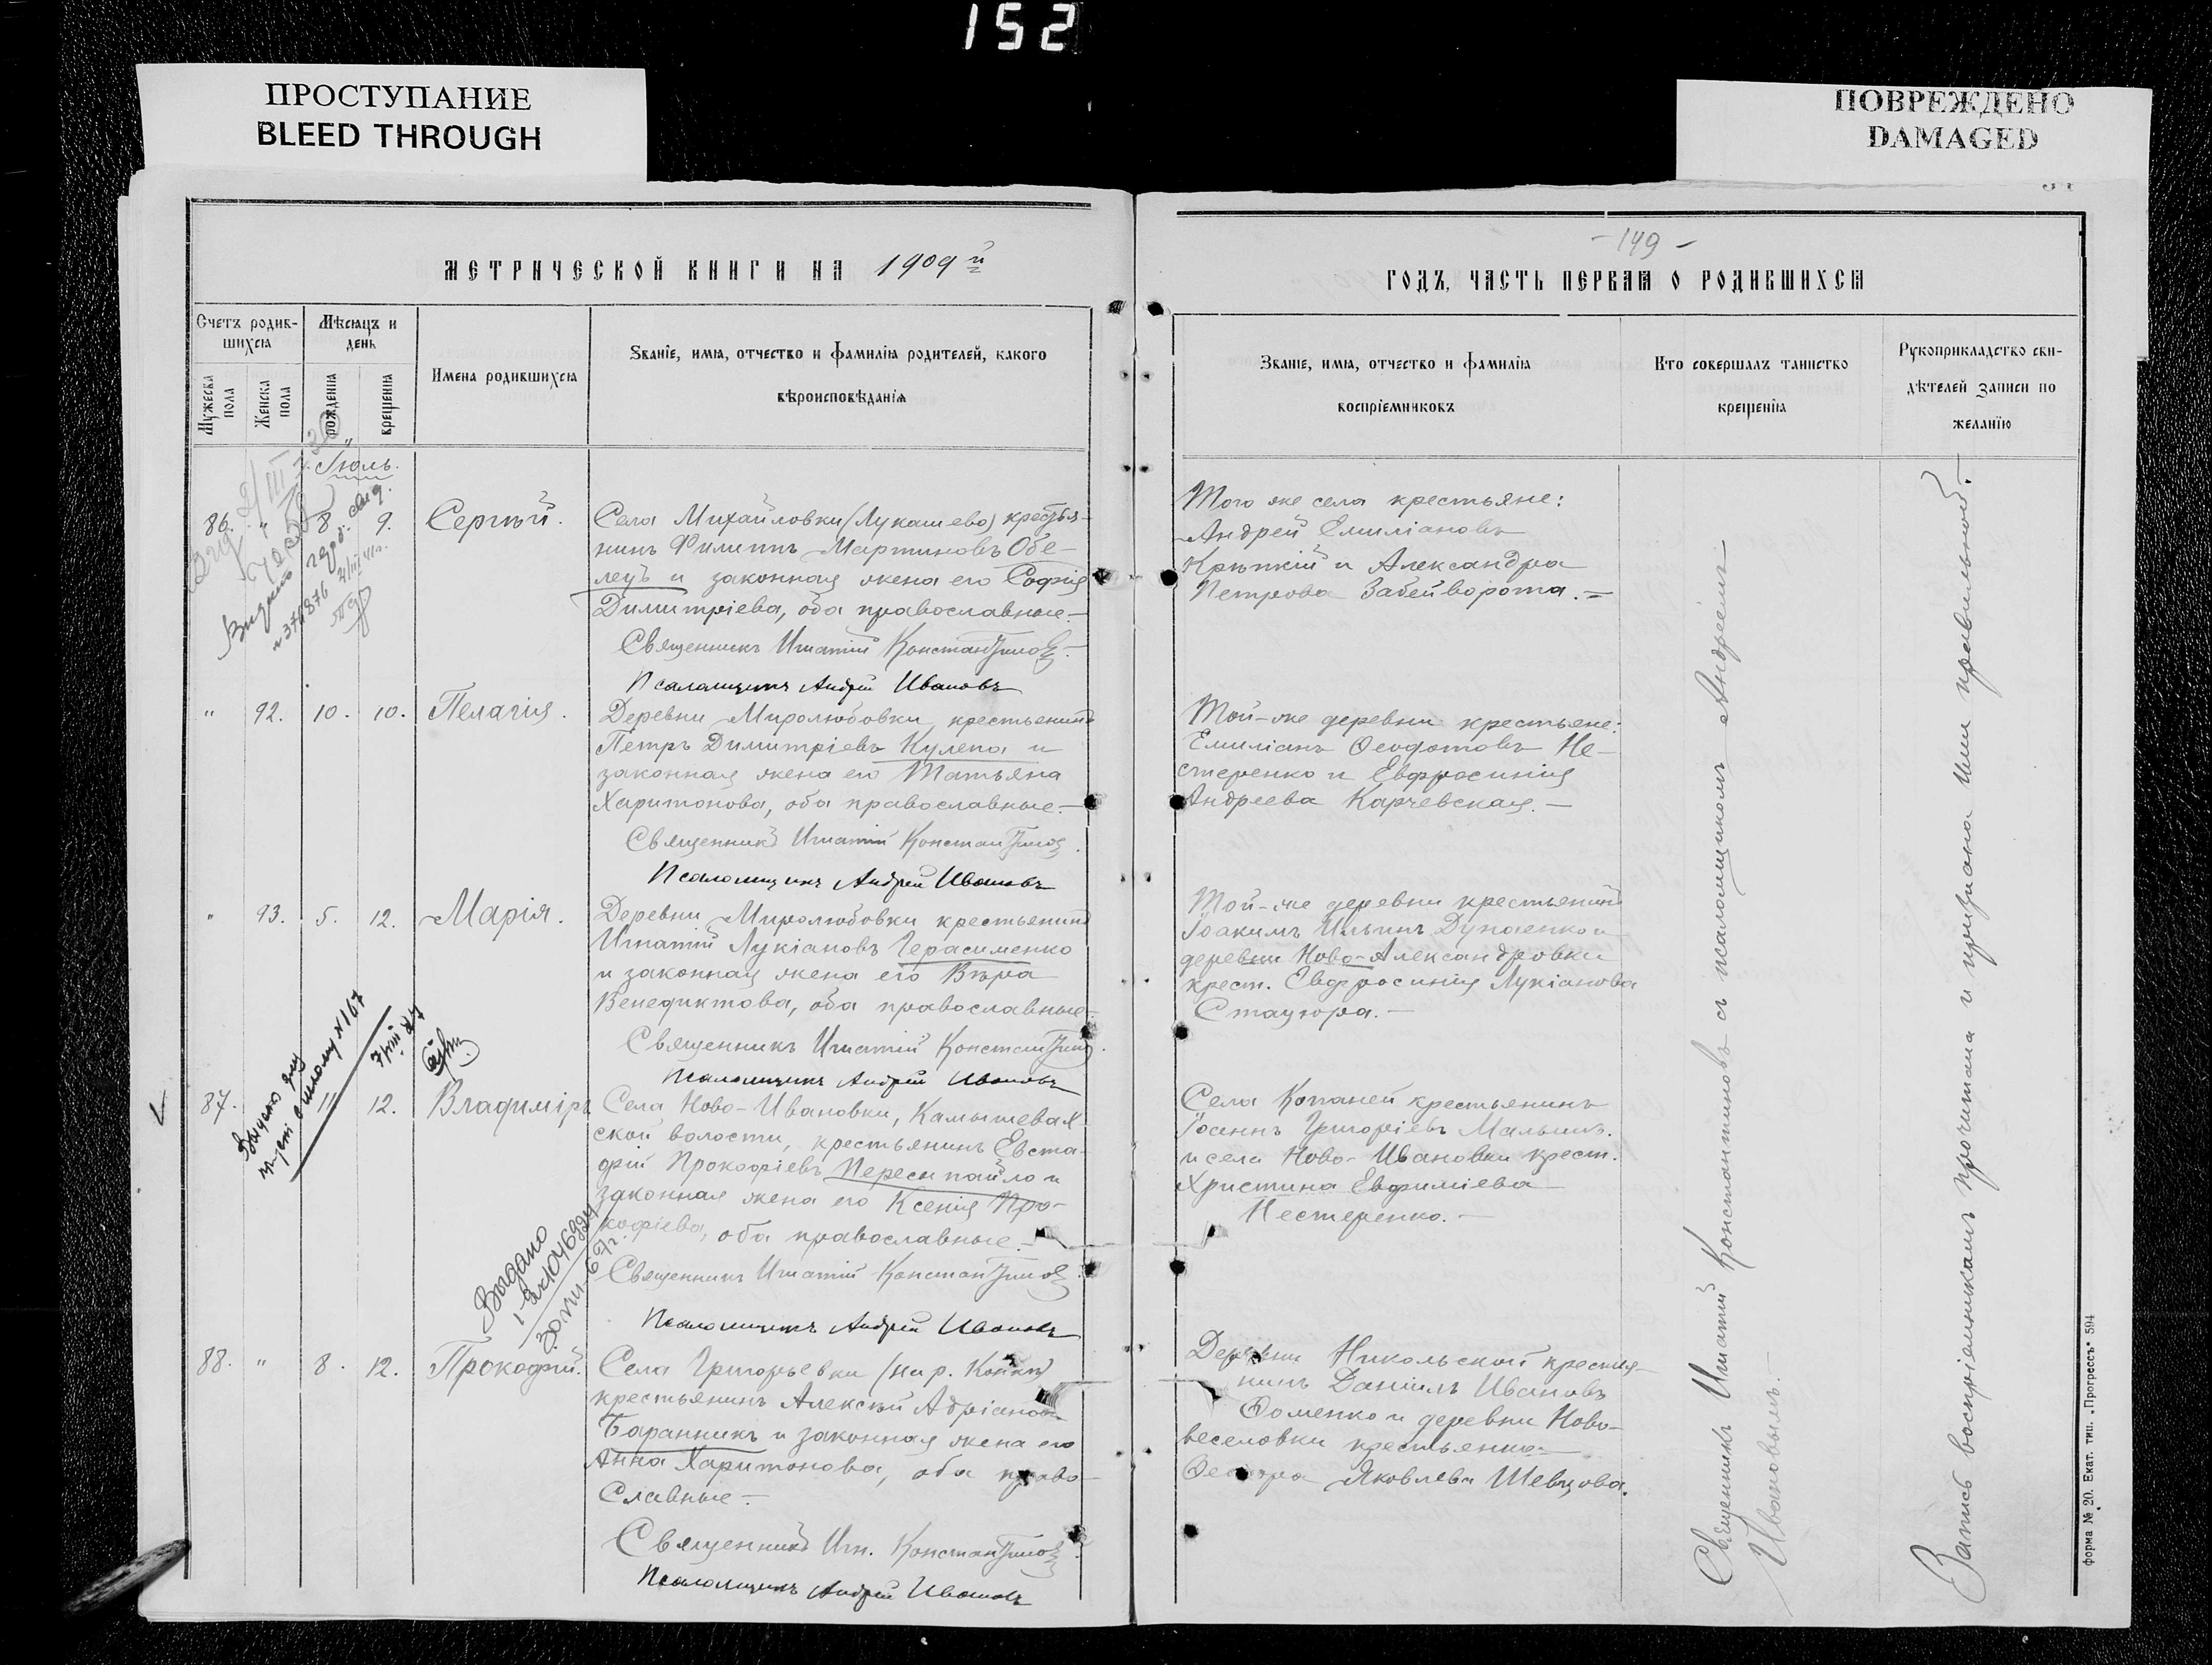 152
ПРОСТУПАНИЕ
BLEED THROUGH
ПОВРЕЖДЕНО
DAMAGED
МЕТРИЧЕСКОЙ КНИГИ НА 1909 й
Счетъ родив-
шихся
Мѣсяцъ и
день
Мужеска
пола
Женска
пола
рожденія
крещенія
Имена родившихся
Званіе, имя, отчество и фамилія родителей, какого
вѣроисповѣданія
Іюль.
86. " 8 9. Сергѣй.
Села Михайловки (Лукашево) крестья-
нинъ Филиппъ Мартиновъ Обе-
лецъ и законная жена его Софія
Димитріева, оба православные.-
Священникъ Игнатій Константиновъ.
Псаломщикъ Андрей Ивановъ
№ 374876
" 92. 10. 10. Пелагія.
Деревни Миролюбовки крестьянинъ
Петръ Димитріевъ Кулепа и
законная жена его Татьяна
Харитонова, оба православные.-
Священникъ Игнатій Константиновъ.
Псаломщикъ Андрей Ивановъ
" 93. 5. 12. Марія.
Деревни Миролюбовки крестьянинъ
Игнатій Лукіановъ Герасименко
и законная жена его Вѣра
Венедиктова, оба православные.-
Священникъ Игнатій Константиновъ.
Псаломщикъ Андрей Ивановъ
87. 11 12. Владиміръ
Села Ново-Ивановки, Камышевах-
ской волости, крестьянинъ Евста-
фій Прокофіевъ Пересипайло и
законная жена его Ксенія Про-
кофіева, оба православные.-
Священникъ Игнатій Константиновъ.
Псаломщикъ Андрей Ивановъ
в школу № 167
Выдано
88. " 8. 12. Прокофій.
Села Григорьевки (на р. Конкѣ)
крестьянинъ Алексѣй Адріановъ
Баранникъ и законная жена его
Анна Харитонова, оба право-
славные.-
Священникъ Игн. Константиновъ.
Псаломщикъ Андрей Ивановъ
- 149 -
ГОДЪ, ЧАСТЬ ПЕРВАЯ О РОДИВШИХСЯ
Званіе, имя, отчество и фамилія
воспріемниковъ
Кто совершалъ таинство
крещенія
Рукоприкладство сви-
дѣтелей записи по
желанію
Того же села крестьяне:
Андрей Емиліановъ
Крѣпкій и Александра
Петрова Забейворота.-
Той-же деревни крестьяне:
Емиліанъ Ѳеодотовъ Не-
стеренко и Евфросинія
Андреева Карчевская.-
Той-же деревни крестьянинъ
Іоакимъ Ильинъ Дунаенко и
деревни Ново-Александровки
крест. Евфросинія Лукіанова
Села Копаней крестьянинъ
Іоаннъ Григоріевъ Малышъ.
и села Ново-Ивановки крест.
Христина Евфиміева
Нестеренко.-
Деревни Никольской крестья-
нинъ Даніилъ Ивановъ
Ѳоменко и деревни Ново-
веселовки крестьянка
Яковлева Шевцова.
Священникъ Игнатій Константиновъ съ псаломщикомъ Андреемъ
Ивановымъ.-
Запись воспріемникамъ прочитана и признана ими правильной.-
форма № 20. Екат. тип. „Прогрессъ“ 594